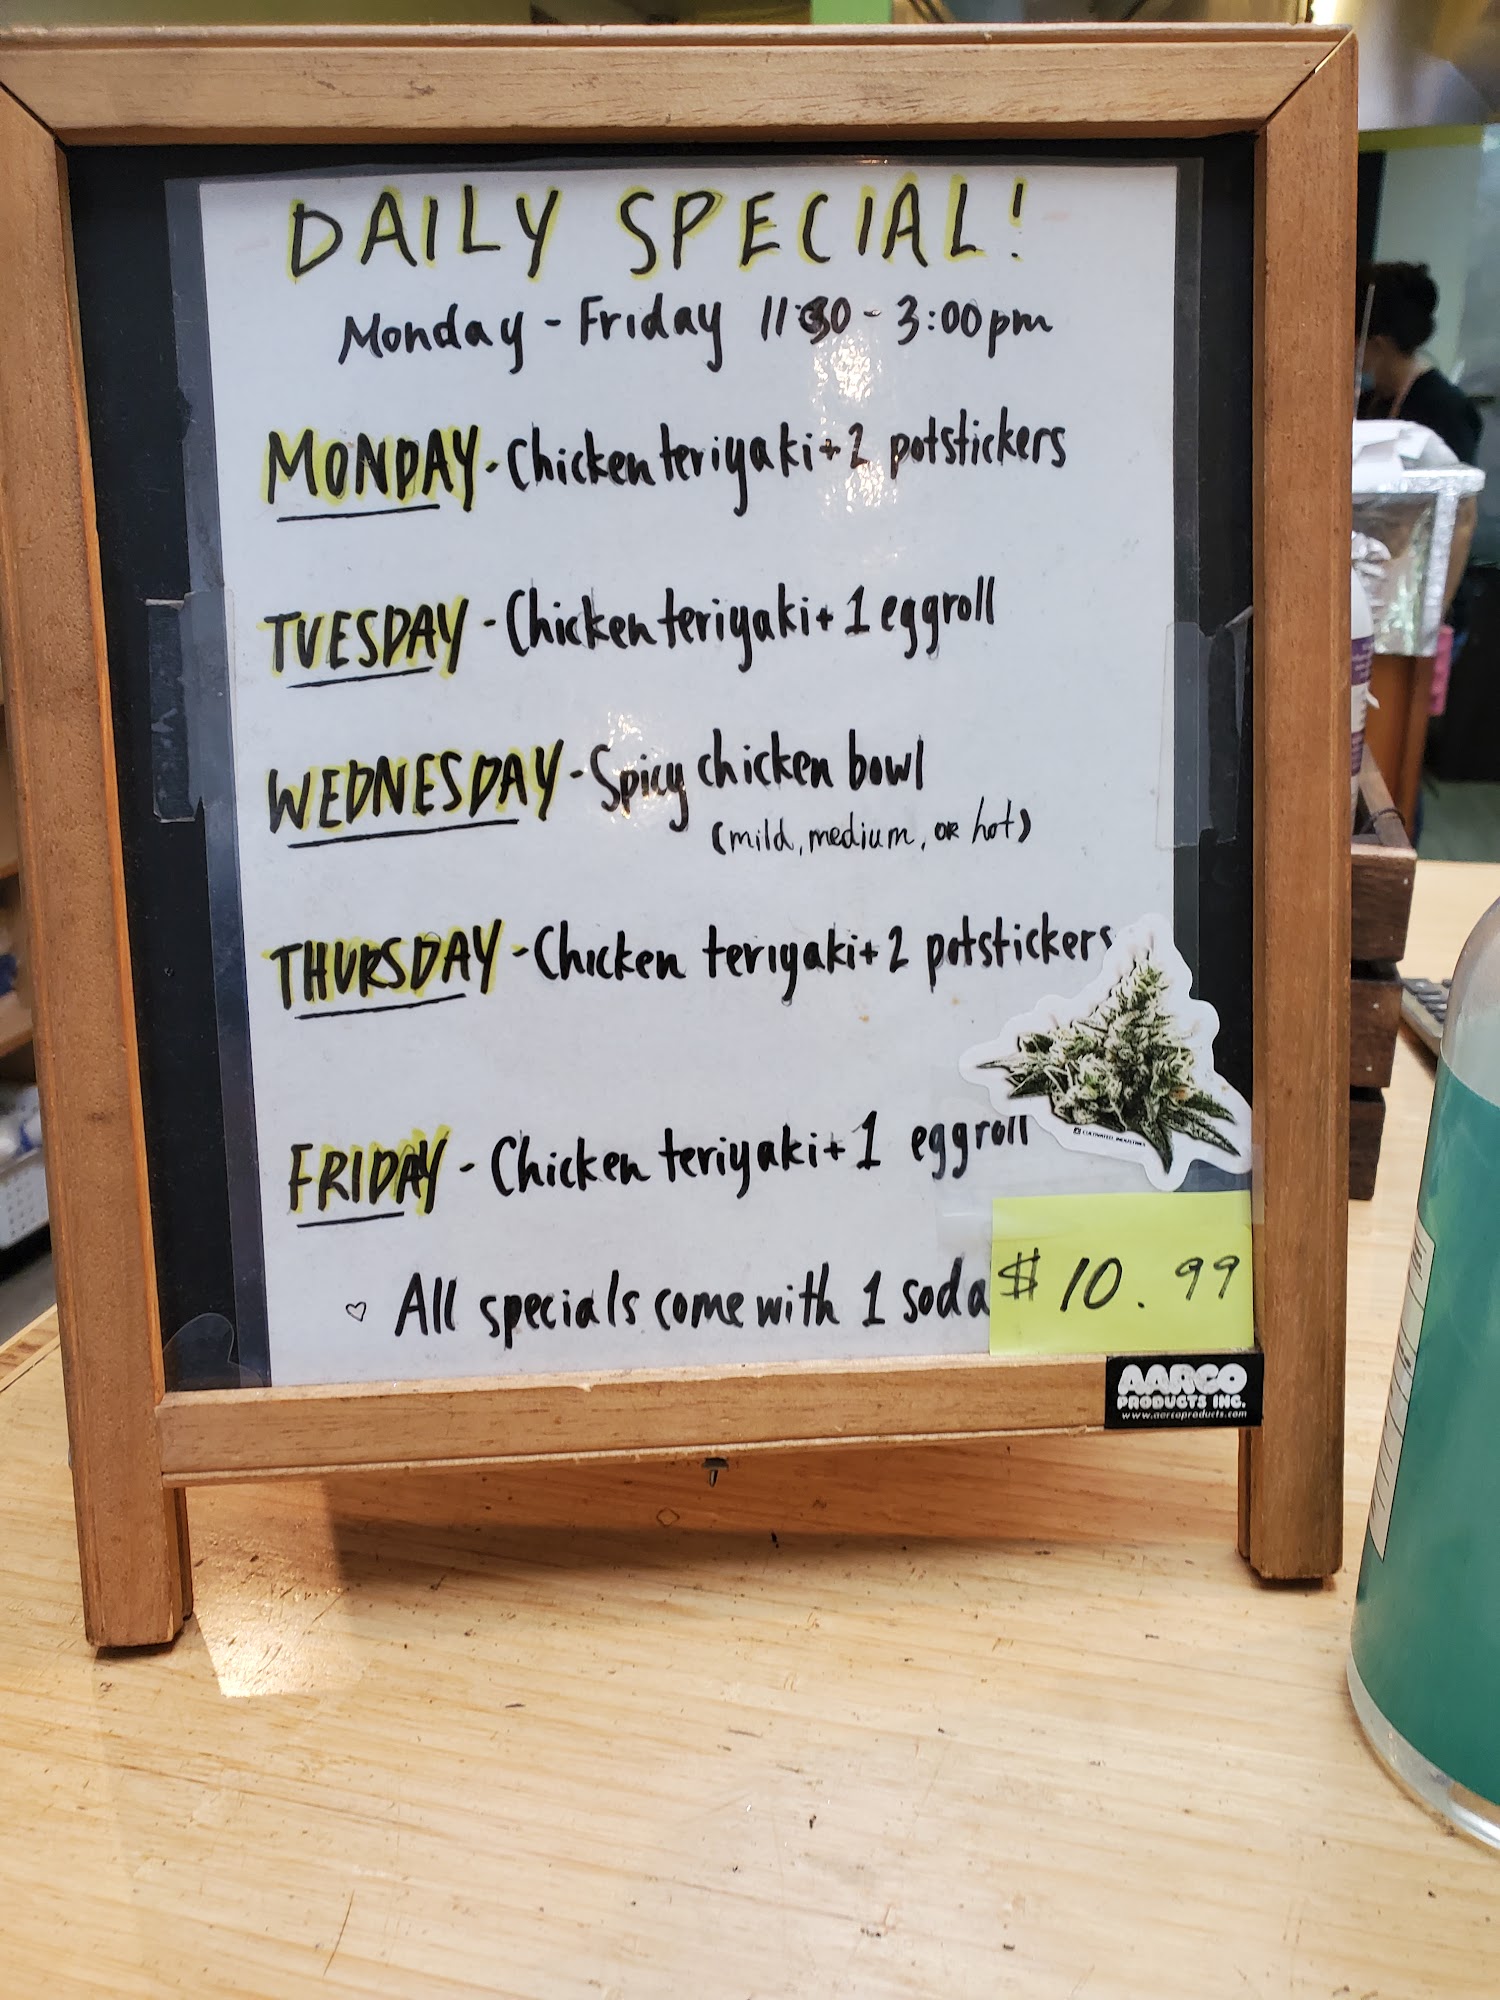 DAILY SPECIAL!
Monday - Friday 11:30 - 3:00pm
MONDAY - Chicken teriyaki + 2 potstickers
TUESDAY - Chicken teriyaki + 1 eggroll
WEDNESDAY - Spicy chicken bowl
(mild, medium, or hot)
THURSDAY - Chicken teriyaki + 2 potstickers
CULTIVATED INDUSTRIES
FRIDAY - Chicken teriyaki + 1 eggroll
♡ All specials come with 1 soda
$10.99
AARCO
PRODUCTS INC.
www.aarcoproducts.com